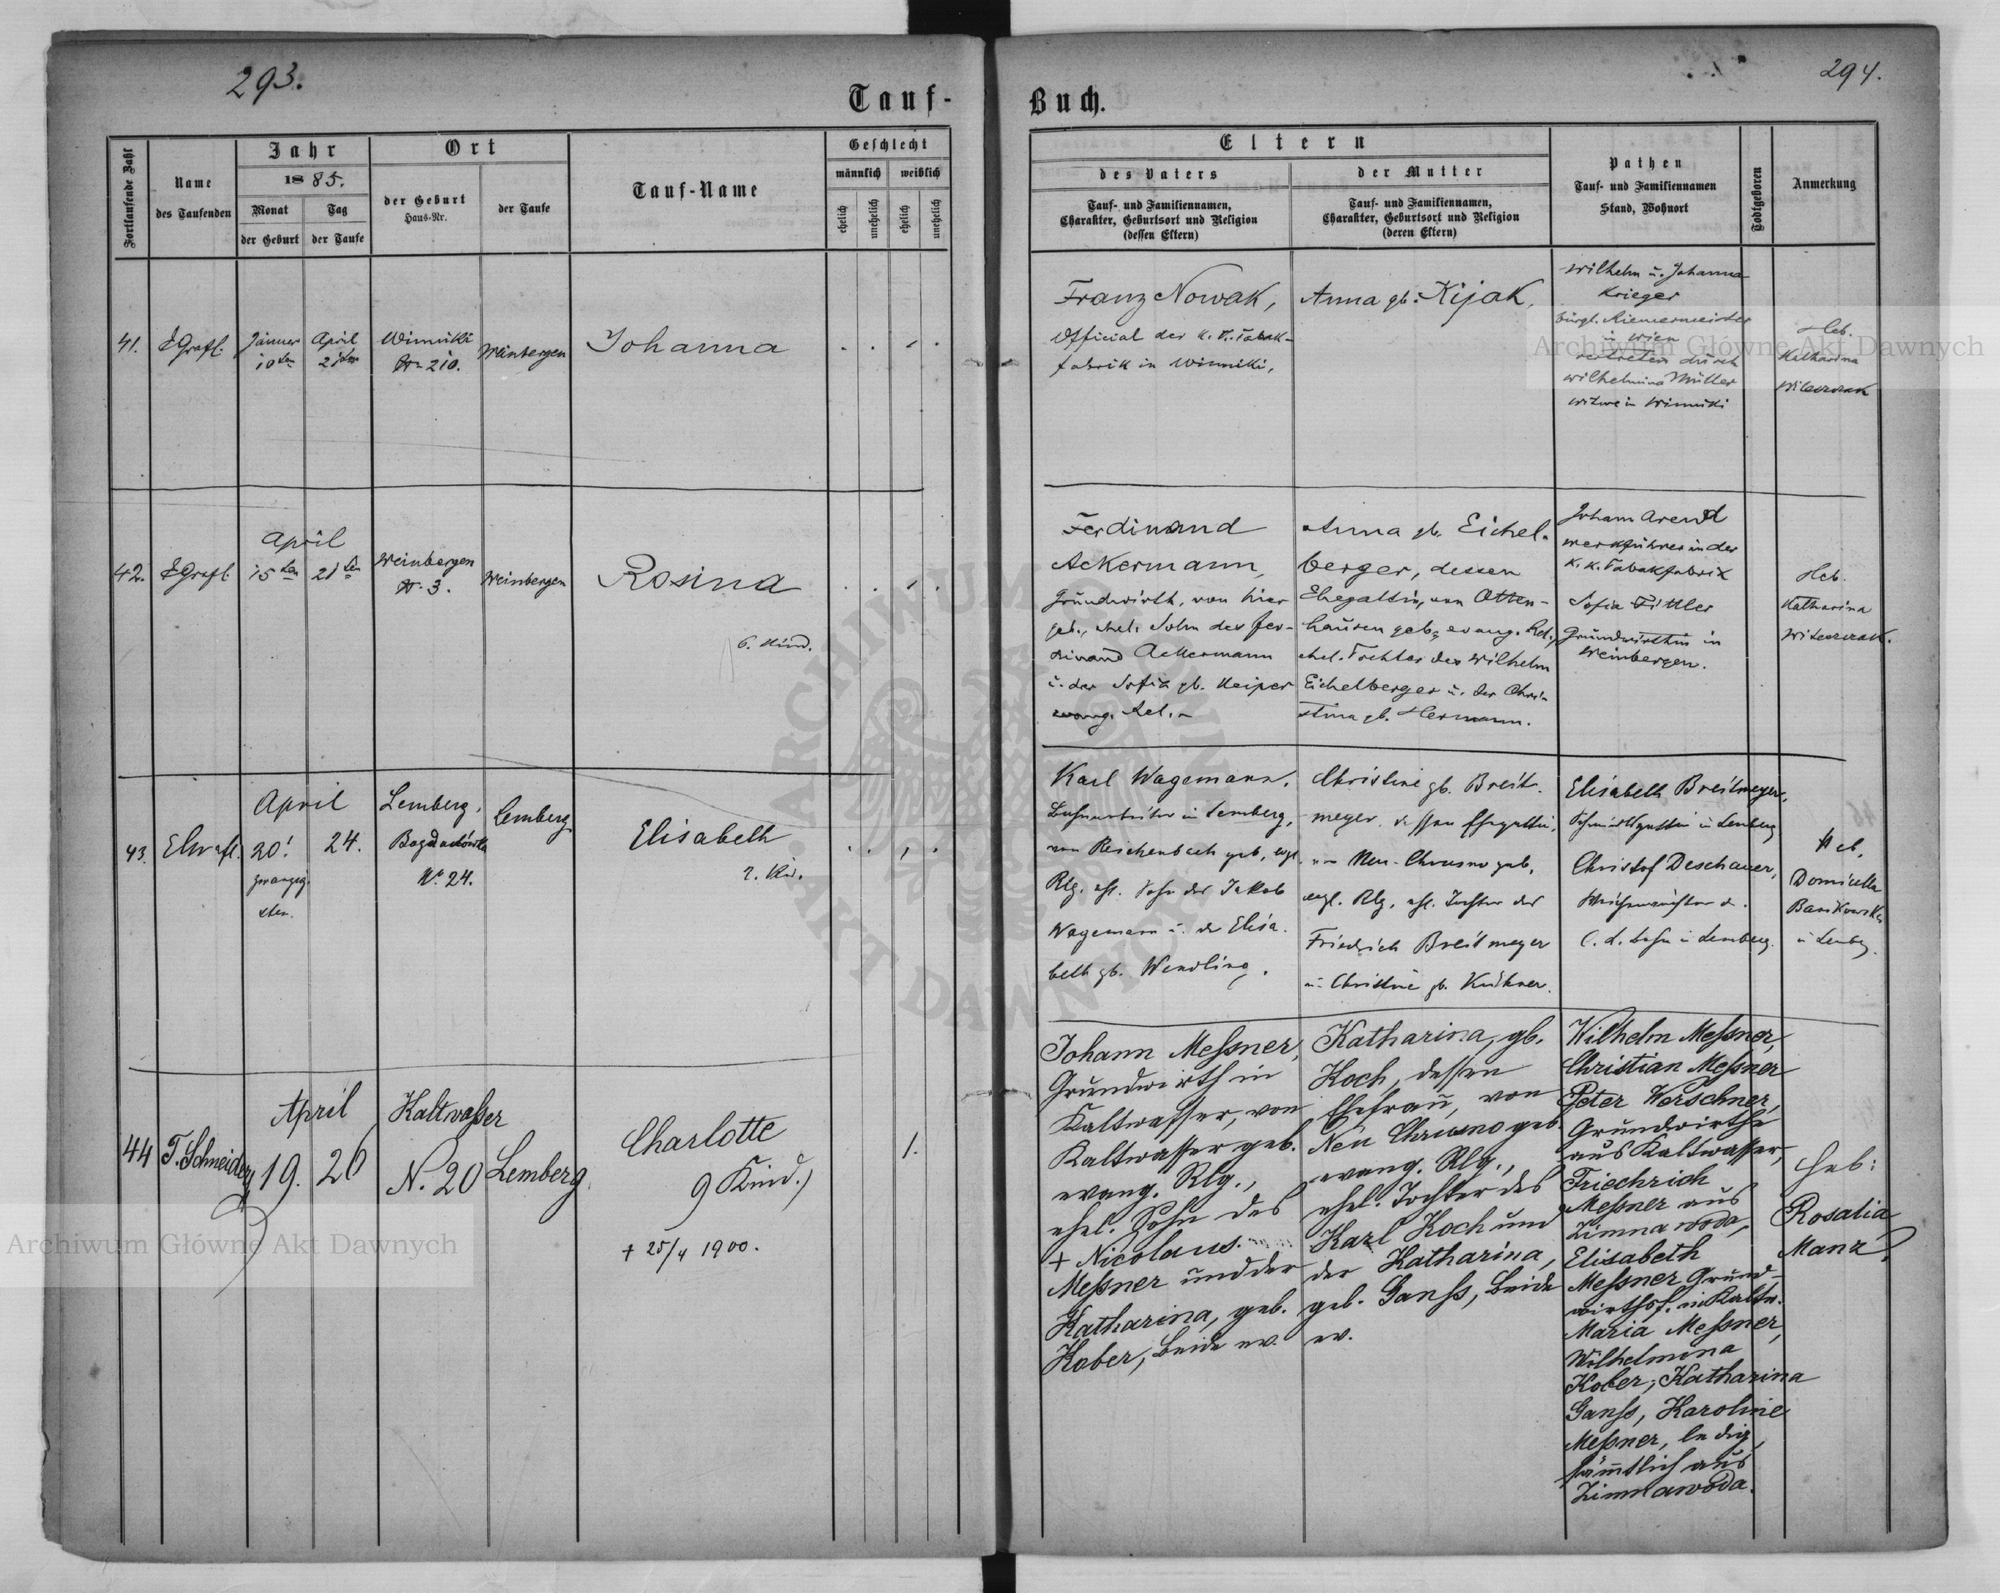 293.
294.
Tauf-
Buch.
Fortlaufende Zahl
Name
des Taufenden
Jahr
1885.
Monat
Tag
der Geburt
der Taufe
Ort
der Geburt
Haus-Nr.
der Taufe
Tauf-Name
Geschlecht
männlich
weiblich
ehelich
unehelich
ehelich
unehelich
Eltern
des Vaters
Tauf- und Familiennamen,
Charakter, Geburtsort und Religion
(dessen Eltern)
der Mutter
Tauf- und Familiennamen,
Charakter, Geburtsort und Religion
(deren Eltern)
Pathen
Tauf- und Familiennamen
Stand, Wohnort
Todtgeboren
Anmerkung
41.
Jänner
10ten
April
21ten
Winniki
Nr. 210.
Weinbergen
Johanna
Franz Nowak,
Official der k. k. Tabak-
fabrik in Winniki,
Anna gb. Kijak,
Wilhelm u. Johanna
Krieger
bürgl. Riemermeister
in Wien
vertreten durch
Wilhelmina Müller
Witwe in Winniki
Heb.
Katharina
42.
April
15ten
21ten
Weinbergen
Nr. 3.
Weinbergen
Rosina
6. Kind.
Ferdinand
Ackermann,
Grundwirth, von hier
geb., ehel. Sohn des Fer-
dinand Ackermann
u. der Sofia gb. Keiper
evang. Rel.
Anna gb. Eichel-
berger, dessen
Ehegattin, von Otten-
hausen geb., evang. Rel.,
ehel. Tochter des Wilhelm
Eichelberger u. der Chris-
tina gb. Hermann.
Johann Arend
Werkführer in der
k. k. Tabakfabrik
Sofia Fittler
Grundwirthin in
Weinbergen.
Heb.
Katharina
43.
April
20.
zwanzig-
sten.
24.
Lemberg,
Nr. 24.
Lemberg
Elisabeth
2. Kind.
Karl Wagemann,
Bahnarbeiter in Lemberg,
von Reichenbach geb., evgl.
Rlg. ehl. Sohn des Jakob
Wagemann u. der Elisa-
beth gb. Wendling.
Christine gb. Breit-
meyer, dessen Ehegattin,
von Neu-Chrusno geb.
evgl. Rlg., ehl. Tochter des
Friedrich Breitmeyer
u. Christine gb.
Elisabeth Breitmeyer,
in Lemberg
Christof Deschauer,
in Lemberg.
Heb.
Domicella
u Lemberg
44
T. Schneider
April
19.
26
Kaltwasser
N. 20
Lemberg
Charlotte
9 Kind.)
+ 25/4 1900.
1.
Johann Meßner,
Grundwirth in
Kaltwasser, von
Kaltwasser geb.
evang. Rlg.,
ehel. Sohn des
+ Nicolaus
Meßner und der
Katharina, geb.
Kober, beide ev.
Katharina, gb.
Koch, dessen
Ehefrau, von
Neu Chrusno geb.
evang. Rlg.,
ehel. Tochter des
Karl Koch und
der Katharina,
geb. Ganß, beide
ev.
Wilhelm Meßner,
Christian Meßner
Peter Werschner,
Grundwirthe
aus Kaltwasser,
Friedrich
Meßner aus
Zimnawoda,
Elisabeth
Meßner Grund-
wirthsf. in Kaltw.
Maria Meßner,
Wilhelmina
Kober, Katharina
Ganß, Karoline
Meßner, ledig,
sämtlich aus
Zimnawoda.
Heb:
Rosalia
Manz
Archiwum Główne Akt Dawnych
Archiwum Główne Akt Dawnych